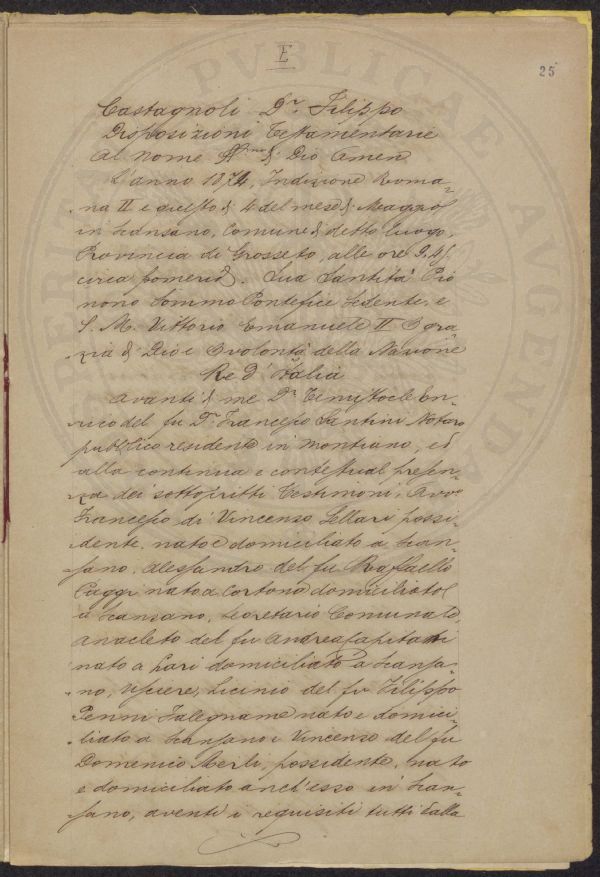 E
25
Castagnoli Dr. Filippo
Disposizioni Testamentarie
Al Nome SSmo di Dio Amen
L'anno 1874, Indizione Roma-
na II e questo dì 4 del mese di Maggio
in Scansano, Comune di detto luogo,
Provincia di Grosseto, alle ore 9,45
circa pomerid. Sua Santità Pio
nono Sommo Pontefice Sedente, e
S. M. Vittorio Emanuele II P gra-
zia di Dio e P volontà della Nazione
Re d'Italia
Avanti di me Dr. Temistocle En-
rico del fu Dr. Francesco Santini Notaro
pubblico residente in Montiano, ed
alla continua e contestual presen-
za dei sottoscritti Testimoni, Avvo
Francesco di Vincenzo Sellari possi-
dente nato e domiciliato a Scan-
sano, Alessandro del fu Raffaello
nato a Cortona domiciliato
a Scansano, Secretario Comunale,
Anacleto del fu Andrea Capitani
nato a Pari domiciliato a Scansa-
no, Usciere, Licinio del fu Filippo
Penni Falegname nato e domici-
liato a Scansano e Vincenzo del fu
Domenico Merli, possidente, nato
e domiciliato anch'esso in Scan-
sano, aventi i requisiti tutti dalla
PVBLICAE
AVGENDA